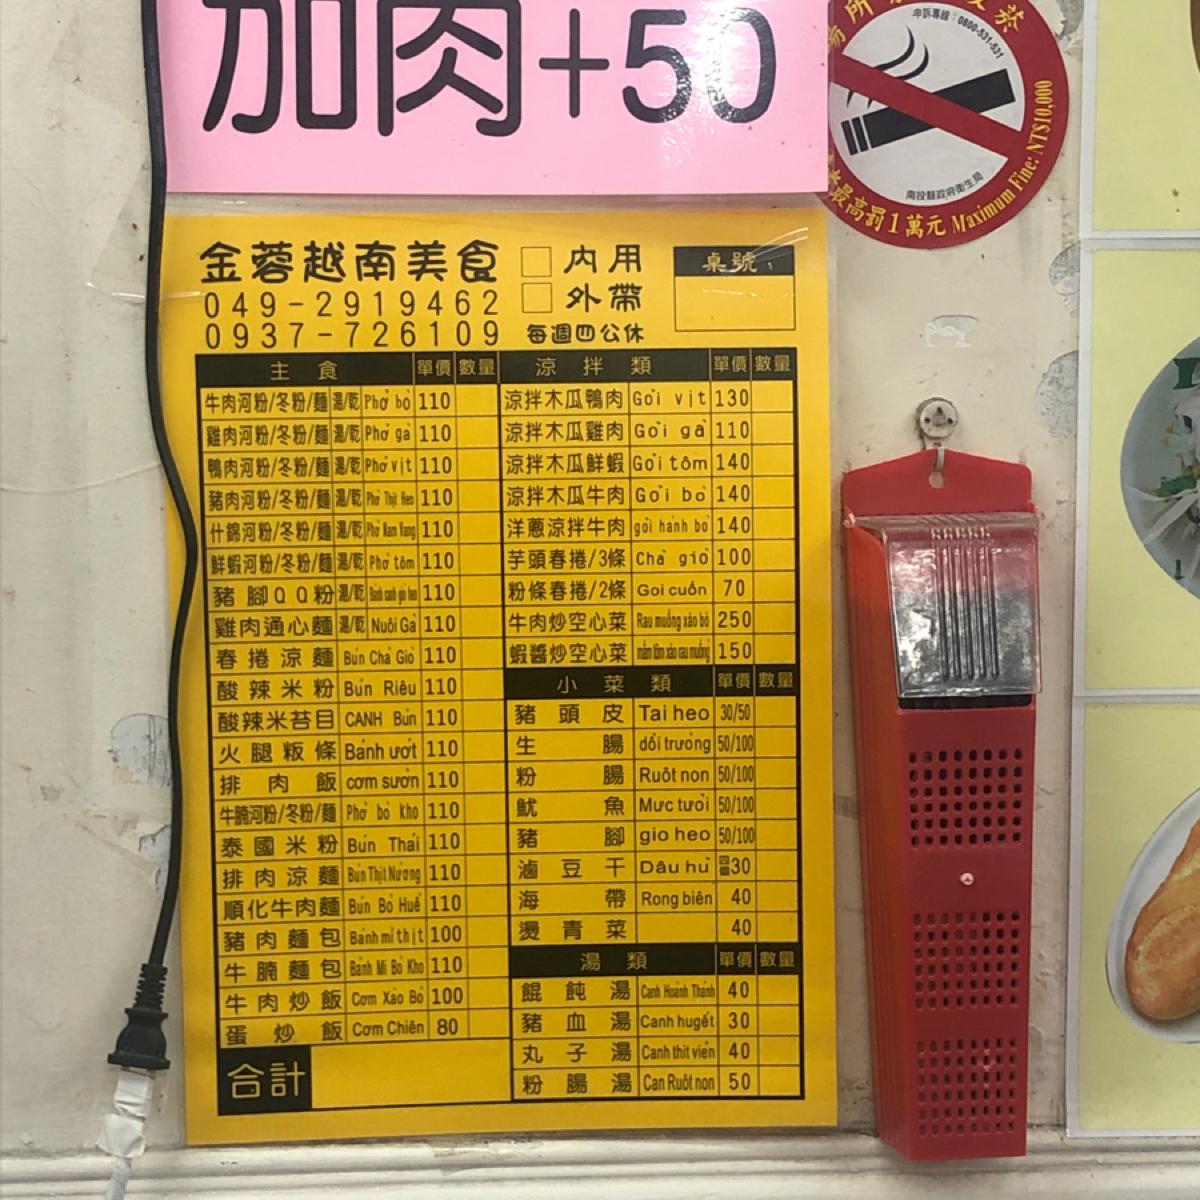 加肉+50
場所
菸
申訴專線：0800-531-531
南投縣政府衛生局
最高罰1萬元 Maximum Fine: NT$10,000
金蓉越南美食
049-2919462
0937-726109
內用
外帶
每週四公休
桌號
主食 單價 數量
牛肉河粉/冬粉/麵 湯/乾 Phở bò 110
雞肉河粉/冬粉/麵 湯/乾 Phở gà 110
鴨肉河粉/冬粉/麵 湯/乾 Phở vịt 110
豬肉河粉/冬粉/麵 湯/乾 Phở Thịt Heo 110
什錦河粉/冬粉/麵 湯/乾 Phở Nam Vang 110
鮮蝦河粉/冬粉/麵 湯/乾 Phở tôm 110
豬腳QQ粉 湯/乾 Bánh canh giò heo 110
雞肉通心麵 湯/乾 Nuôi Gà 110
春捲涼麵 Bún Chả Giò 110
酸辣米粉 Bún Riêu 110
酸辣米苔目 CANH Bún 110
火腿粄條 Bánh ướt 110
排肉飯 cơm sườn 110
牛腩河粉/冬粉/麵 Phở bò Kho 110
泰國米粉 Bún Thái 110
排肉涼麵 Bún Thịt Nướng 110
順化牛肉麵 Bún Bò Huế 110
豬肉麵包 Bánh mì thịt 100
牛腩麵包 Bánh Mì Bò Kho 110
牛肉炒飯 Cơm Xào Bò 100
蛋炒飯 Cơm Chiên 80
合計
涼拌類 單價 數量
涼拌木瓜鴨肉 Gỏi vịt 130
涼拌木瓜雞肉 Gỏi gà 110
涼拌木瓜鮮蝦 Gỏi tôm 140
涼拌木瓜牛肉 Gỏi bò 140
洋蔥涼拌牛肉 gỏi hành bò 140
芋頭春捲/3條 Chả giò 100
粉條春捲/2條 Goi cuốn 70
牛肉炒空心菜 Rau muống xào bò 250
蝦醬炒空心菜 mắm tôm xào rau muống 150
小菜類 單價 數量
豬頭皮 Tai heo 30/50
生腸 dồi trường 50/100
粉腸 Ruột non 50/100
魷魚 Mực tươi 50/100
豬腳 giò heo 50/100
滷豆干 Dâu hủ 四個30
海帶 Rong biên 40
燙青菜 40
湯類 單價 數量
餛飩湯 Canh Hoành Thánh 40
豬血湯 Canh huyết 30
丸子湯 Canh thit viên 40
粉腸湯 Can Ruột non 50